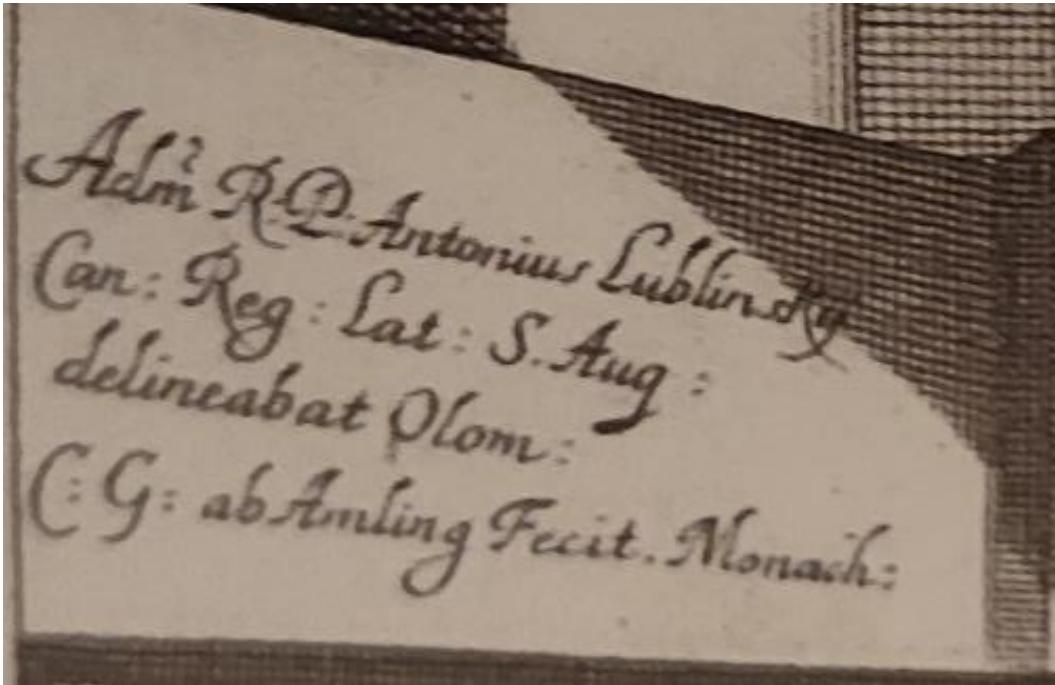 Adm² R. P. Antonius Lublinsky
Can: Reg: Lat: S. Aug:
delineabat Olom:
C: G: ab Amling Fecit. Monach: